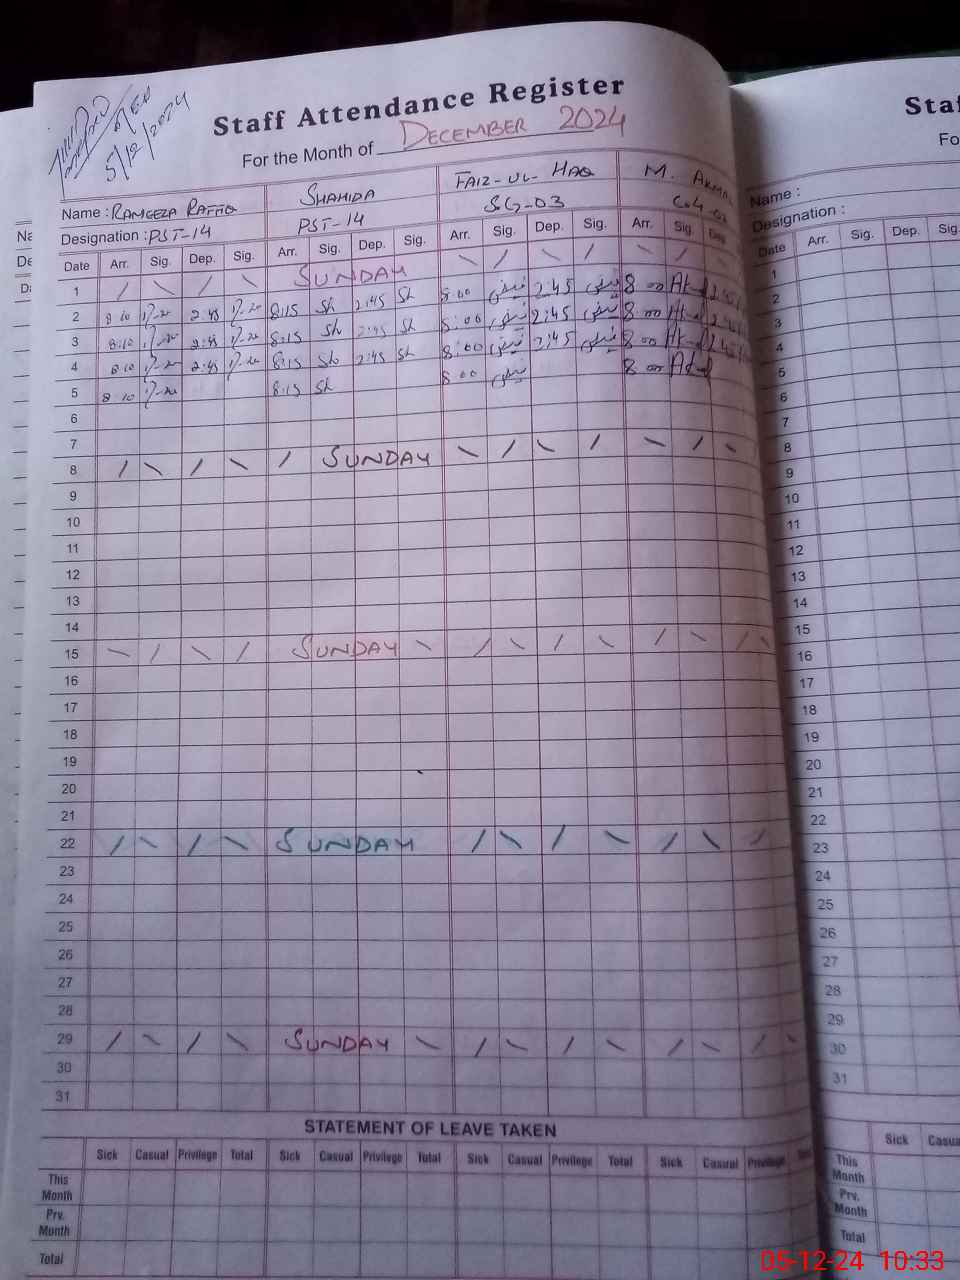 5/12/2024
Staff Attendance Register
For the Month of DECEMBER 2024
Name : RAMEEZA RAFFIQ SHAHIDA FAIZ-UL-HAQ M. AKMAL
Designation : PST-14 PST-14 SG-03
Date Arr. Sig. Dep. Sig. Arr. Sig. Dep. Sig. Arr. Sig. Dep. Sig. Arr. Sig. Dep.
1 SUNDAY
2 8:10 2:45 8:15 Sh 2:45 Sh 8:00 فیض 2:45 فیض 8:00
3 8:10 2:45 8:15 Sh 2:45 Sh 8:00 فیض 2:45 فیض 8:00
4 8:10 2:45 8:15 Sh 2:45 Sh 8:00 فیض 2:45 فیض 8:00
5 8:10 8:15 Sh 8:00 فیض 8:00
6
7
8 SUNDAY
9
10
11
12
13
14
15 SUNDAY
16
17
18
19
20
21
22 SUNDAY
23
24
25
26
27
28
29 SUNDAY
30
31
STATEMENT OF LEAVE TAKEN
Sick Casual Privilege Total Sick Casual Privilege Total Sick Casual Privilege Total Sick Casual Privilege
This Month
Prv. Month
Total
Staf
Fo
Name :
Designation :
Date Arr. Sig. Dep. Sig.
1
2
3
4
5
6
7
8
9
10
11
12
13
14
15
16
17
18
19
20
21
22
23
24
25
26
27
28
29
30
31
Sick Casua
This Month
Prv. Month
Total
Na
De
05-12-24 10:33